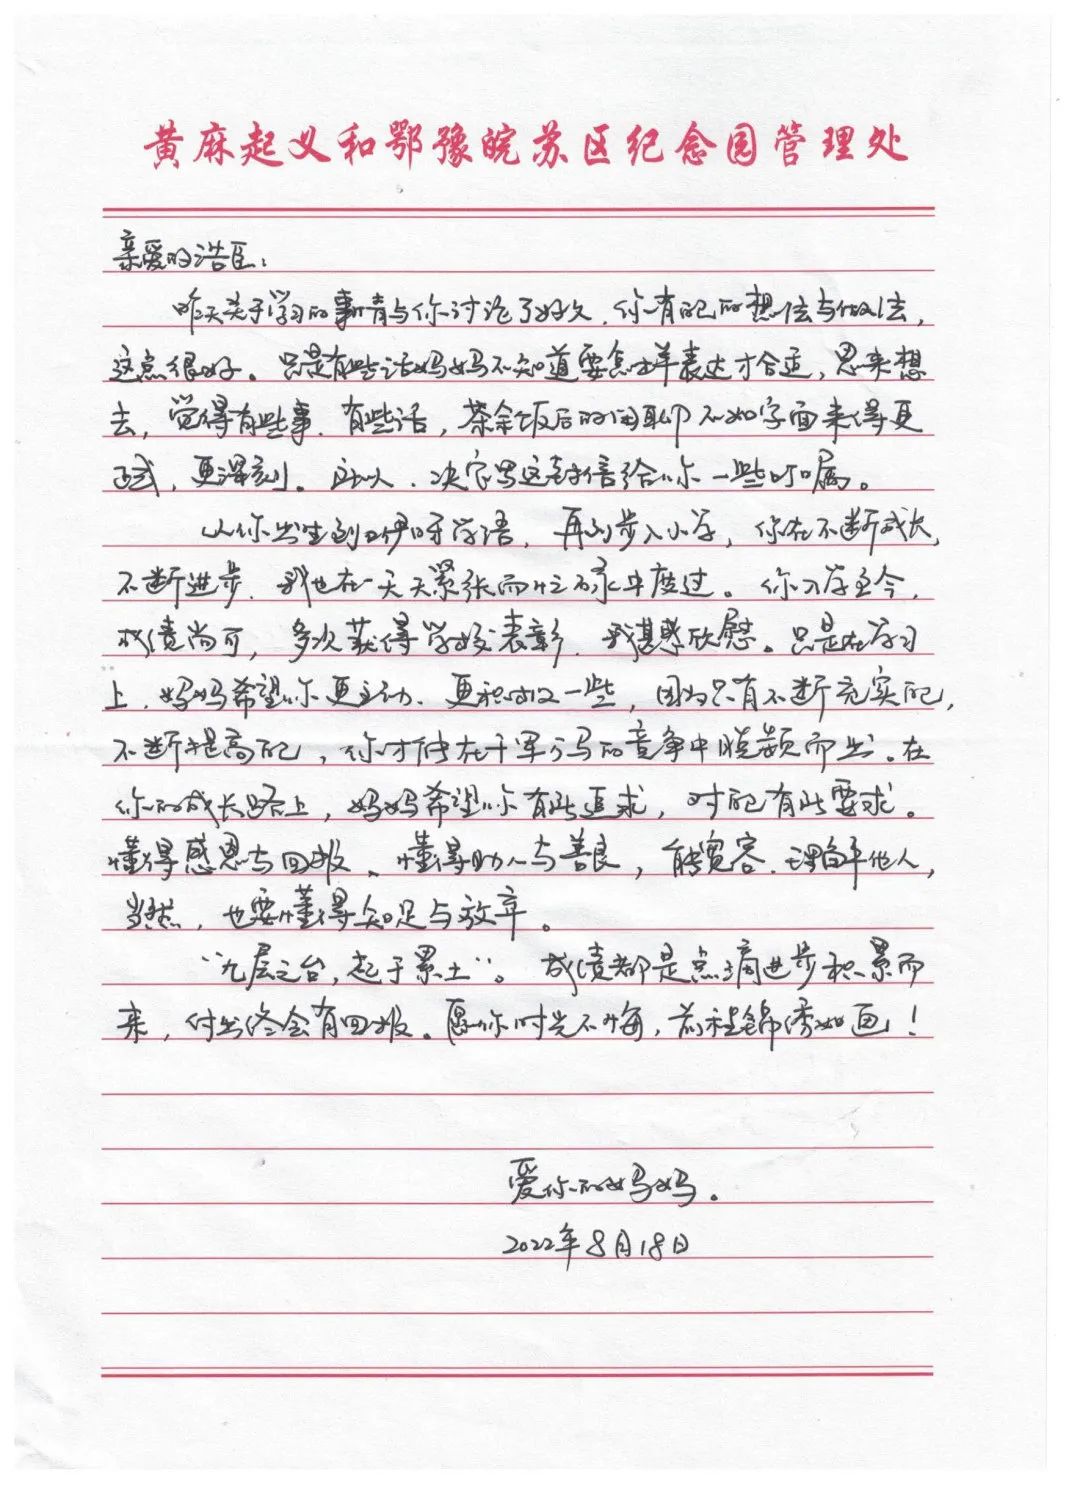 黄麻起义和鄂豫皖苏区纪念园管理处
亲爱的浩臣：
昨天关于学习的事情与你讨论了好久，你有自己的想法与做法，
这点很好。只是有些话妈妈不知道要怎样表达才合适，思来想
去，觉得有些事、有些话，茶余饭后的闲聊不如字面来得更
正式，更深刻。所以，决定写这封信给你一些叮嘱。
从你出生到咿呀学语，再到步入小学，你在不断成长，
不断进步，我也在一天天紧张而忙碌中度过。你入学至今，
成绩尚可，多次获得学校表彰，我甚感欣慰。只是在学习
上，妈妈希望你更主动、更积极一些，因为只有不断充实自己，
不断提高自己，你才能在千军万马的竞争中脱颖而出。在
你的成长路上，妈妈希望你有些追求，对自己有些要求。
懂得感恩与回报、懂得助人与善良，能宽容、理解他人，
当然，也要懂得知足与放弃。
“九层之台，起于累土”。成绩都是点滴进步积累而
来，付出终会有回报。愿你时光不悔，前程锦绣如画！
爱你的妈妈。
2022年8月18日